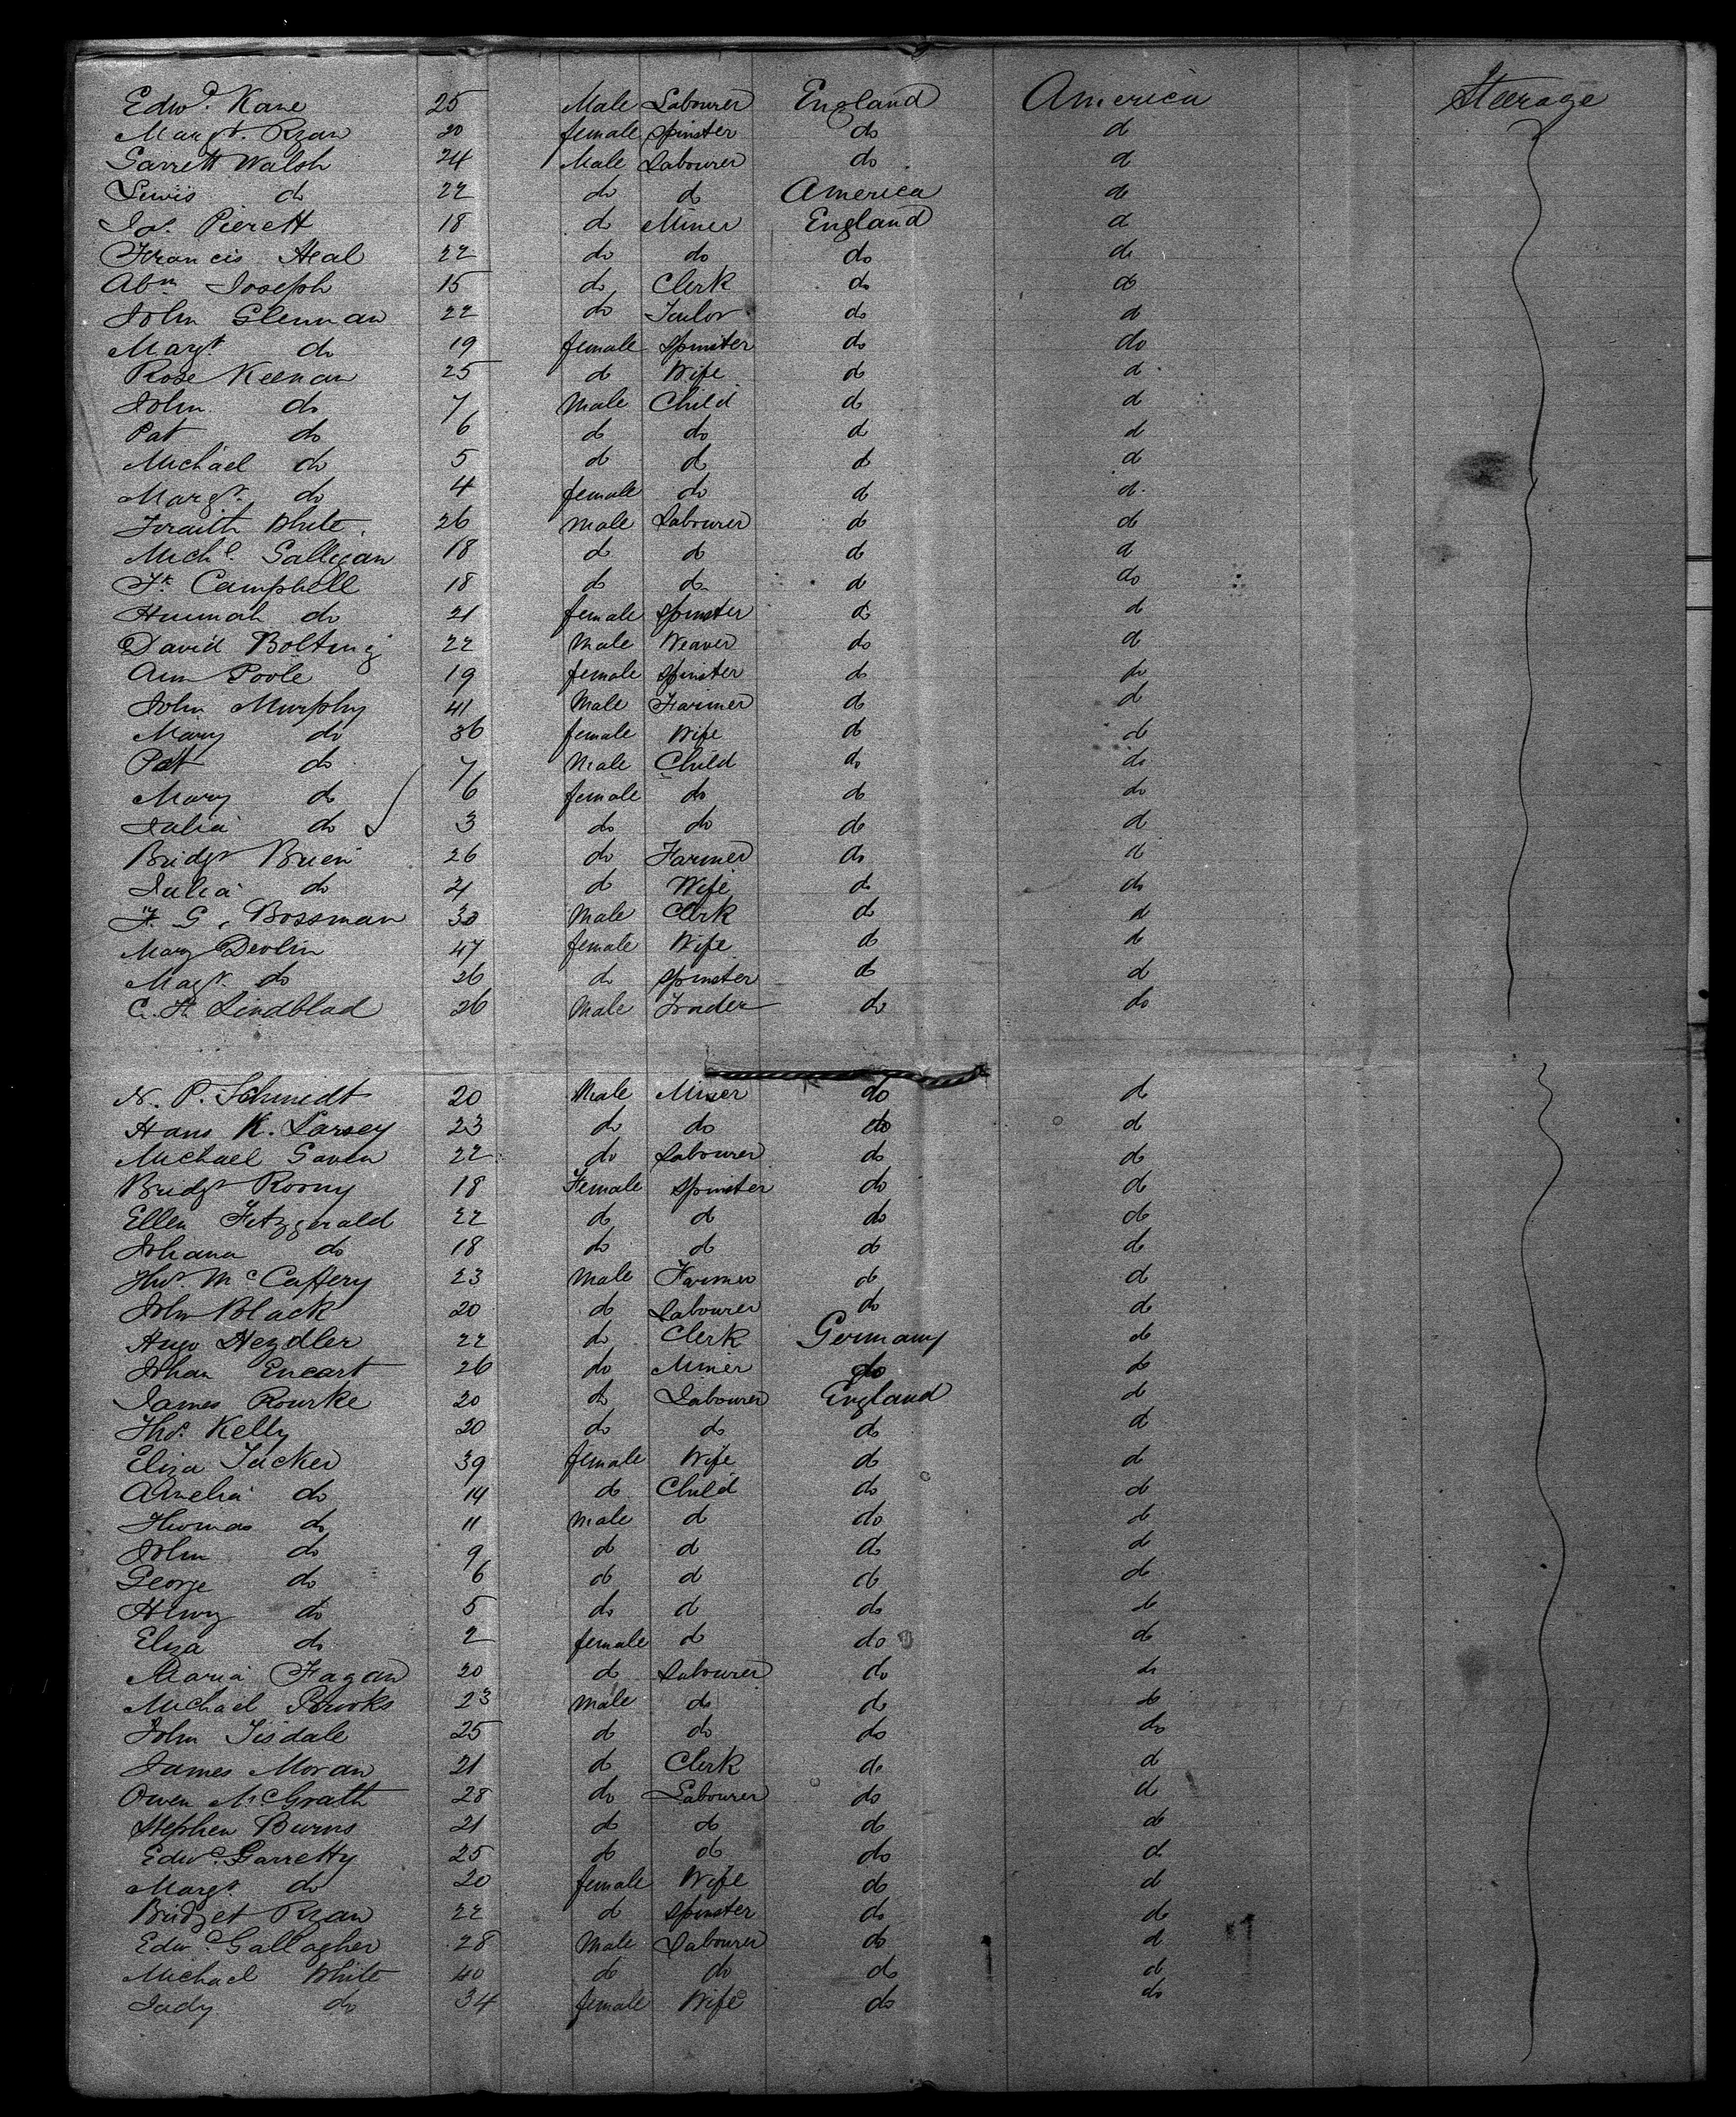 Edwd. Kane 25 Male Labourer England America Steerage
Margt. Ryan 20 female Spinster do do
Garrett Walsh 24 Male Labourer do do
Lewis do 22 do do America do
Jos. Pierett 18 do Miner England do
Francis Heal 22 do do do do
Abm Joseph 15 do Clerk do do
John Glennan 22 do Tailor do do
Margt. do 19 female Spinster do do
Rose Keenan 25 do Wife do do
John do 7 Male Child do do
Pat do 6 do do do do
Michael do 5 do do do do
Margt. do 4 female do do do
White 26 Male Labourer do do
Michl. Galligan 18 do do do do
Fk. Campbell 18 do do do do
Hannah do 21 female Spinster do do
David Bolting 22 Male Weaver do do
Ann Poole 19 female Spinster do do
John Murphy 41 Male Farmer do do
Mary do 36 female Wife do do
Pat do 7 Male Child do do
Mary do 6 female do do do
Julia do 3 do do do do
Bridgt Brien 26 do Farmer do do
Julia do 21 do Wife do do
F. G. Bossman 30 Male Clerk do do
Mary Devlin 47 female Wife do do
Magt. do 26 do Spinster do do
C. H. Lindblad 26 Male Trader do do
N. P. Schmidt 20 Male Miner do do
Hans K. Larsey 23 do do do do
Michael Gaven 22 do Labourer do do
Bridgt Roony 18 Female Spinster do do
Ellen Fitzgerald 22 do do do do
Johana do 18 do do do do
Thos. McCaffery 23 Male Farmer do do
John Black 20 do Labourer do do
Hugo Heydler 22 do Clerk Germany do
Johan Encart 26 do Miner do do
James Rourke 20 do Labourer England do
Thos. Kelly 20 do do do do
Eliza Tucker 39 female Wife do do
Amelia do 14 do Child do do
Thomas do 11 Male do do do
John do 9 do do do do
George do 6 do do do do
Henry do 5 do do do do
Eliza do 2 female do do do
Maria Fagan 20 do Labourer do do
Michael Brooks 23 Male do do do
John Tisdale 25 do do do do
James Moran 21 do Clerk do do
Owen McGrath 28 do Labourer do do
Stephen Burns 21 do do do do
Edwd. Garretty 25 do do do do
Margt. do 20 female Wife do do
Bridget Ryan 22 do Spinster do do
Edwd. Gallagher 28 Male Labourer do do
Michael White 40 do do do do
Judy do 34 female Wife do do